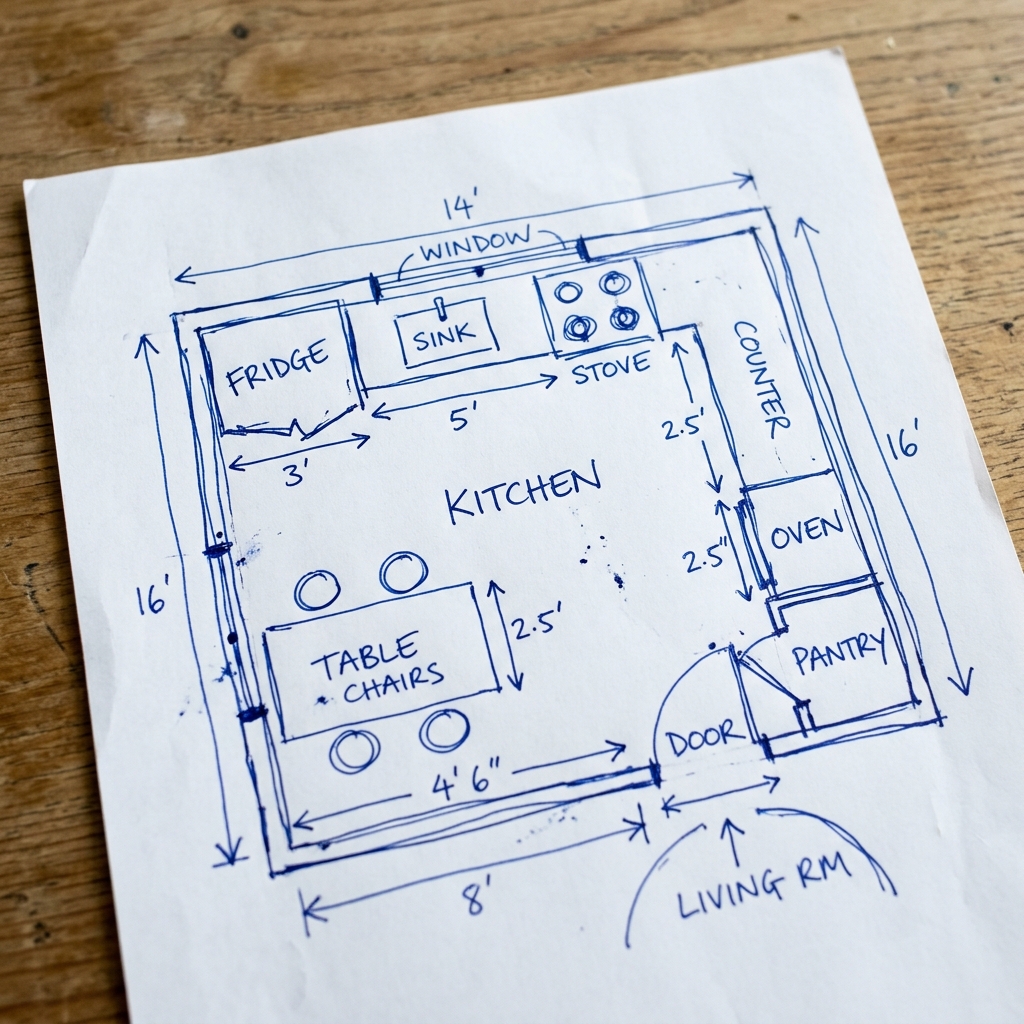 14'
WINDOW
FRIDGE
SINK
STOVE
COUNTER
5'
3'
2.5'
16'
KITCHEN
OVEN
2.5"
16'
2.5'
TABLE
CHAIRS
PANTRY
DOOR
4' 6"
8'
LIVING RM